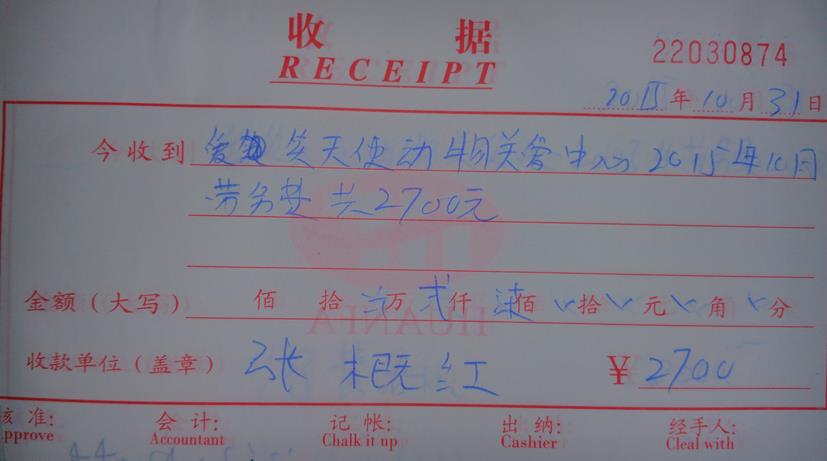 收 据
RECEIPT
22030874
2015年10月31日
今收到 爱 笑天使动物关爱中心 2015年10月
劳务费 共2700元
金额（大写） 佰 拾 万 贰仟 柒佰 拾 元 角 分
收款单位（盖章） 张 概 红 ￥2700
核 准: 会 计: 记 帐: 出 纳: 经手人:
pprove Accountant Chalk it up Cashier Cleal with